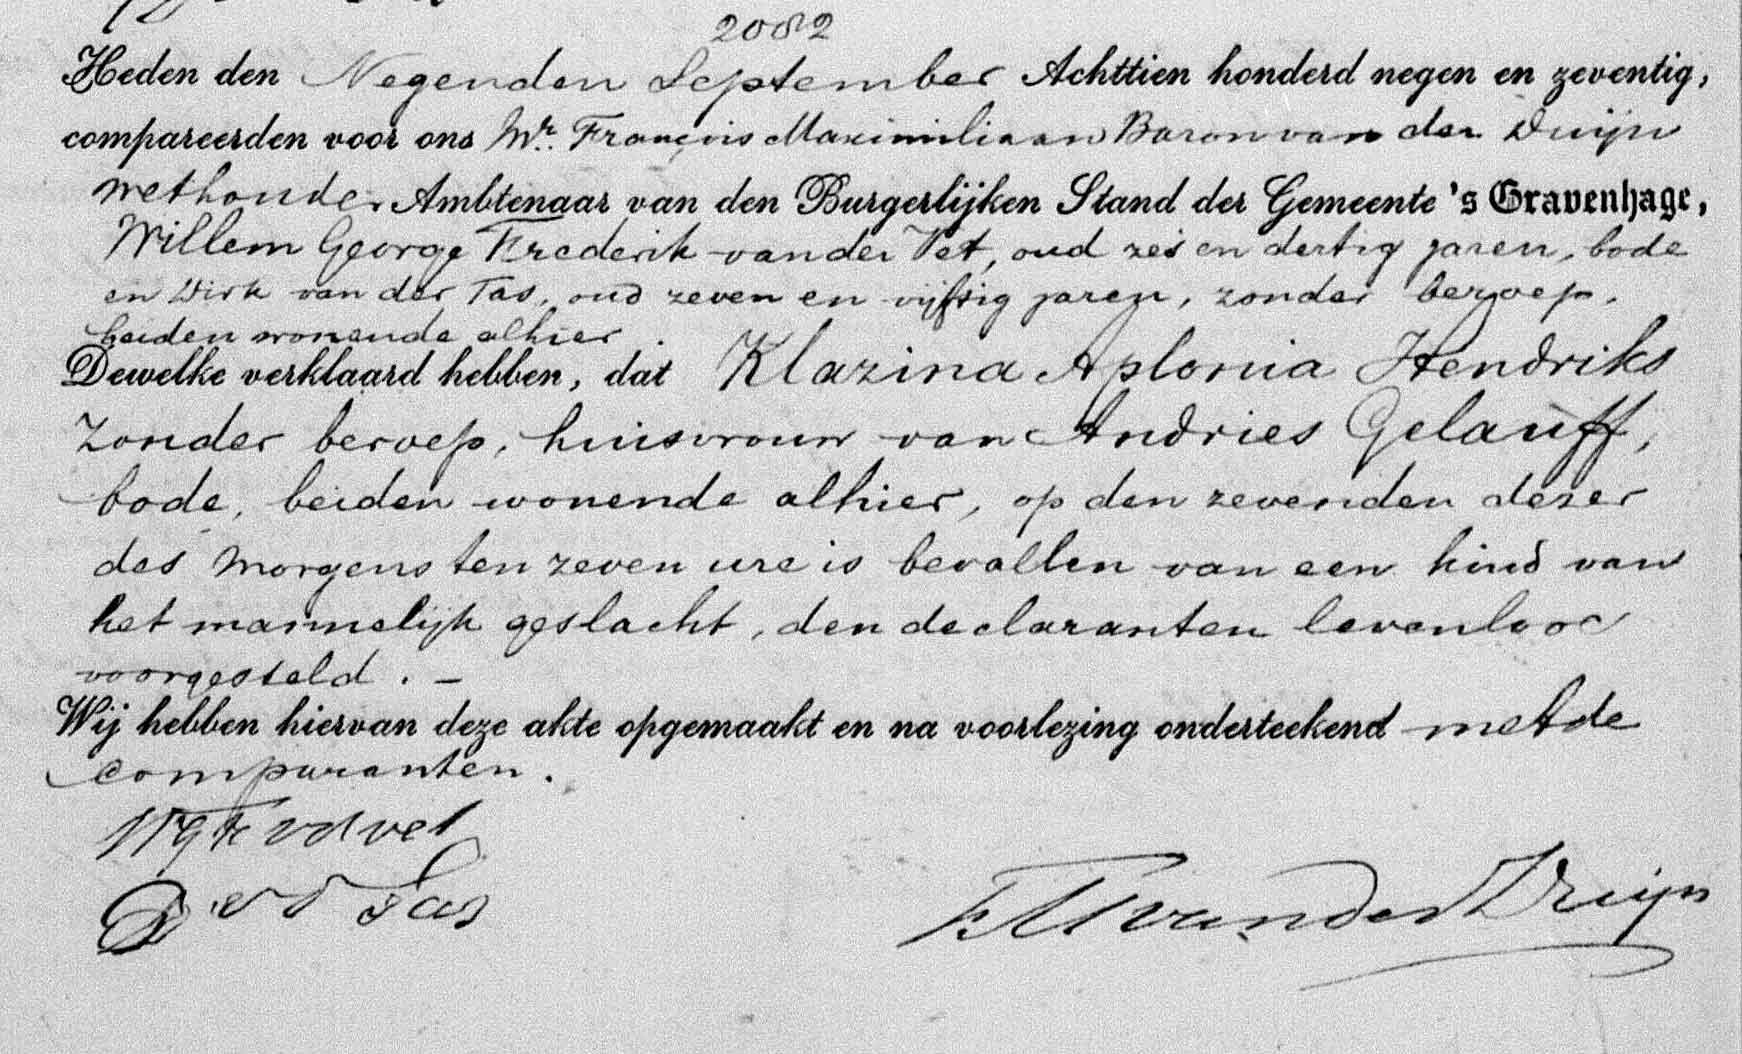 2082
Heden den Negenden September Achttien honderd negen en zeventig,
compareerden voor ons Mr. François Maximiliaan Baron van der Duijn
wethouder Ambtenaar van den Burgerlijken Stand der Gemeente 's Gravenhage,
Willem George Frederik van der Vet, oud zes en dertig jaren, bode
en Dirk van der Tas, oud zeven en vijftig jaren, zonder beroep,
beiden wonende alhier.
Dewelke verklaard hebben, dat Klazina Aplonia Hendriks
zonder beroep, huisvrouw van Andries Gelauff,
bode, beiden wonende alhier, op den zevenden dezer
des morgens ten zeven ure is bevallen van een kind van
het mannelijk geslacht, den declaranten levenloos
voorgesteld. –
Wij hebben hiervan deze akte opgemaakt en na voorlezing onderteekend met de
comparanten.
WGF vd Vet
D. v d Tas
FM van der Duijn